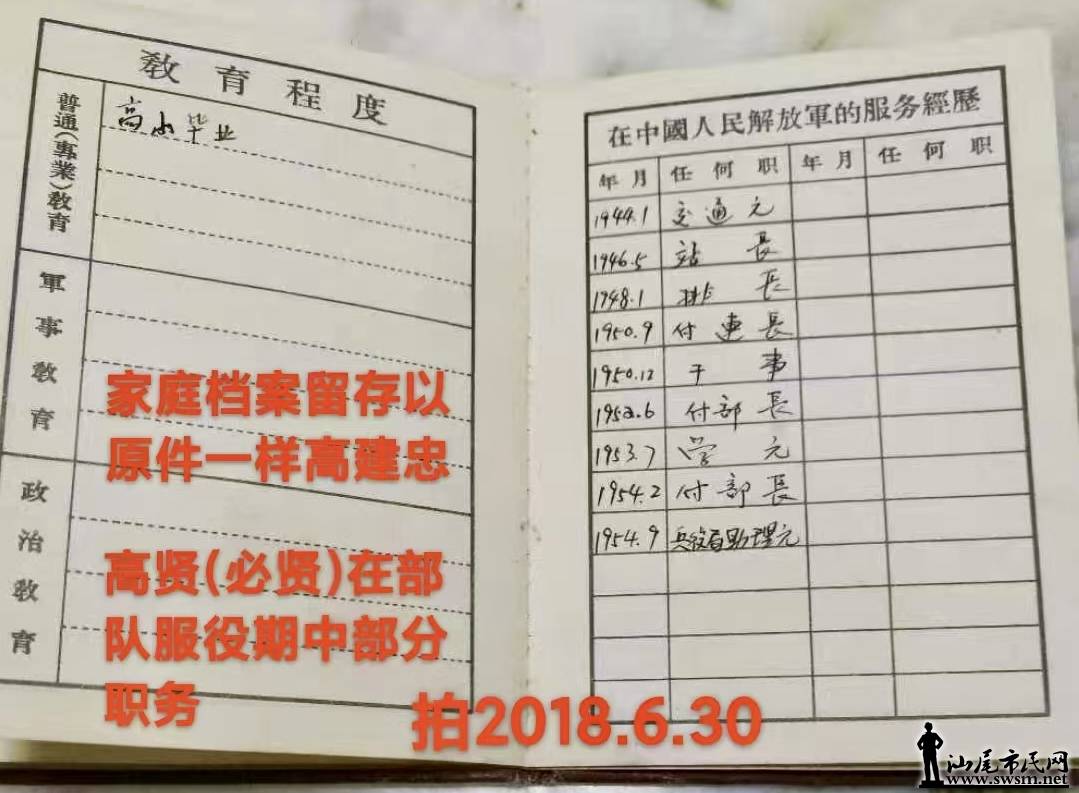 教育程度
普通(專業)教育
高小毕业
軍事教育
政治教育
在中國人民解放軍的服务經歷
年月 任何职 年月 任何职
1944.1 交通元
1946.5 站長
1948.1 排長
1950.9 付連長
1950.12 干事
1952.6 付部長
1953.7 学元
1954.2 付部長
1954.9 兵役局助理元
家庭档案留存以
原件一样高建忠
高贤(必贤)在部
队服役期中部分
职务
拍2018.6.30
汕尾市民网
www.swsm.net